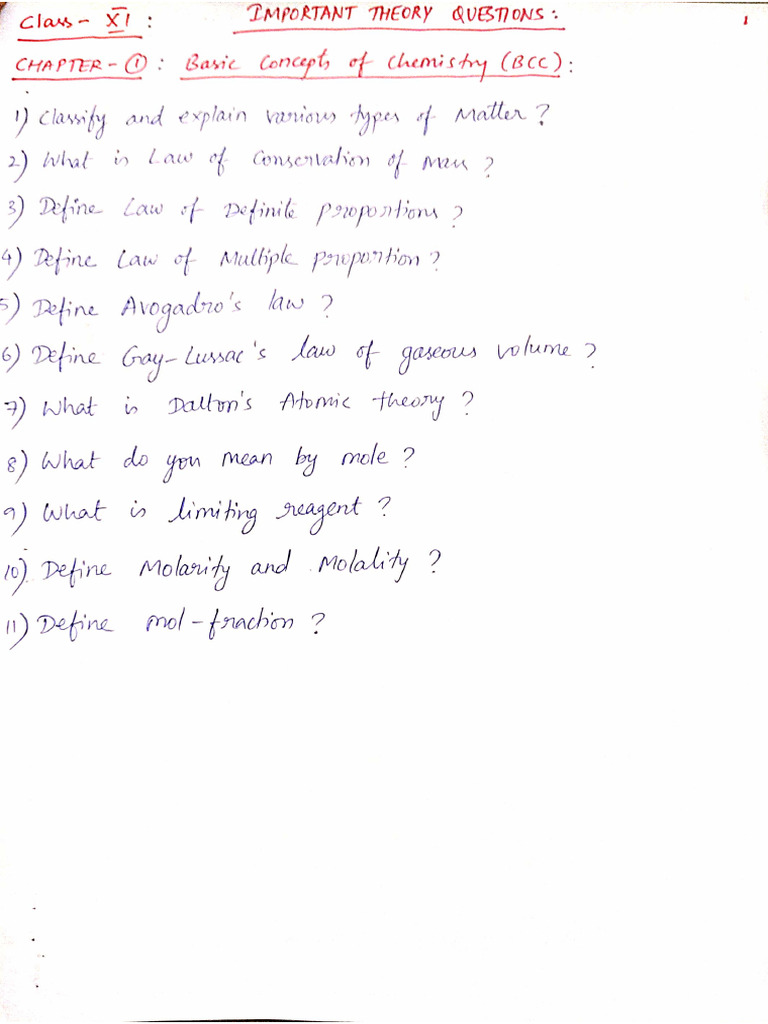 Class - XI : IMPORTANT THEORY QUESTIONS : 1
CHAPTER - ① : Basic Concepts of Chemistry (BCC) :
1) Classify and explain various types of Matter ?
2) What is Law of Conservation of Mass ?
3) Define Law of Definite proportions ?
4) Define Law of Multiple proportion ?
5) Define Avogadro's law ?
6) Define Gay-Lussac's law of gaseous volume ?
7) What is Dalton's Atomic theory ?
8) What do you mean by mole ?
9) What is limiting reagent ?
10) Define Molarity and Molality ?
11) Define mol-fraction ?